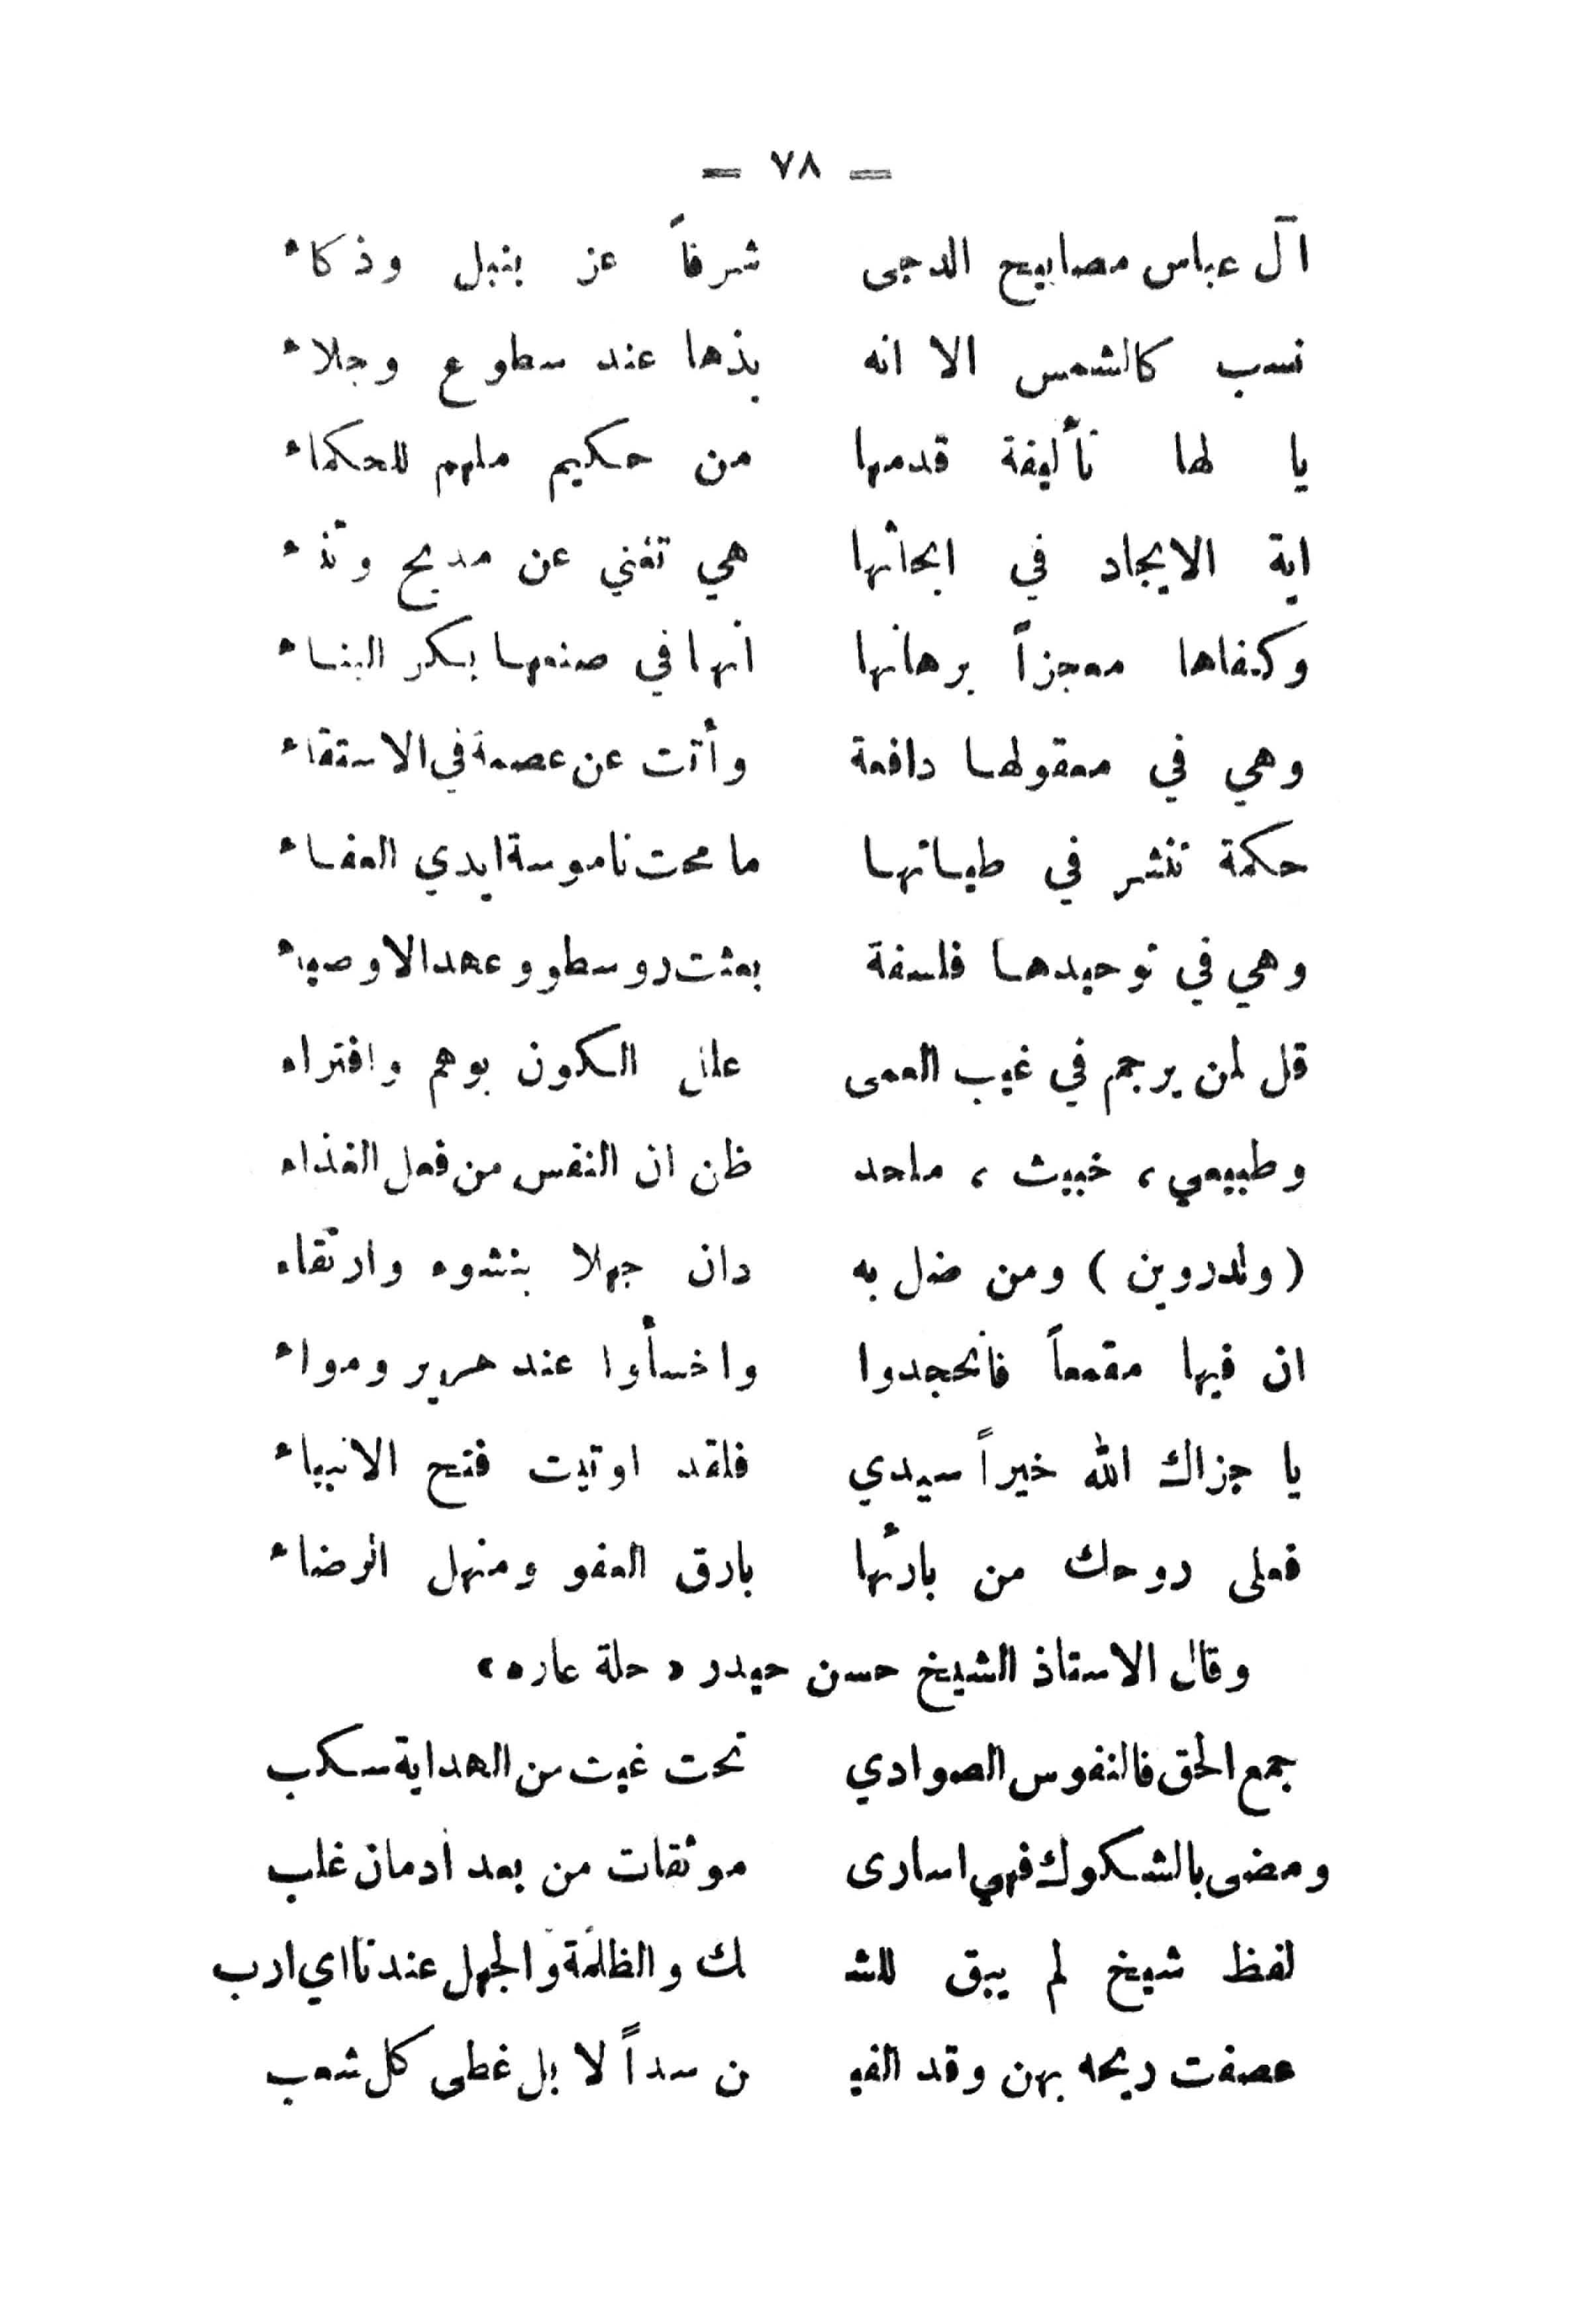 = ٧٨ =
آل عباس مصابيح الدجى شرفاً عز بنبل وذكاء
نسب كالشمس الا انه بذها عند سطوع وجلاء
يا لها تأليفة قدمها من حكيم ملهم للحكماء
اية الايجاد في ابحاثها هي تغني عن مديح وثناء
وكفاها معجزاً برهانها انها في صنعها بكر البناء
وهي في معقولها دافعة وأتت عن عصمة في الاستقاء
حكمة تنشر في طياتها ما محت ناموسة ايدي العفاء
وهي في توحيدها فلسفة بعثت روسطو وعهد الاوصياء
قل لمن يرجم في غيب العمى علل الكون بوهم وافتراء
وطبيعي ، خبيث ، ملحد ظن ان النفس من فعل الغذاء
( ولدروين ) ومن ضل به دان جهلا بنشوء وارتقاء
ان فيها مقمعاً فانحجدوا واخسأوا عند هرير ومواء
يا جزاك الله خيراً سيدي فلقد اوتيت فتح الانبياء
فعلى روحك من بارئها بارق العفو ومنهل الرضاء
وقال الاستاذ الشيخ حسن حيدر « حلة عاره »
جمع الحق فالنفوس الصوادي تحت غيث من الهداية سكب
ومضى بالشكوك فهي اسارى موثقات من بعد أدمان غلب
لفظ شيخ لم يبق للش ك والظلمة والجهل عندنا اي ارب
عصفت ريحه بهن وقد الفي ن سداً لا بل غطى كل شعب